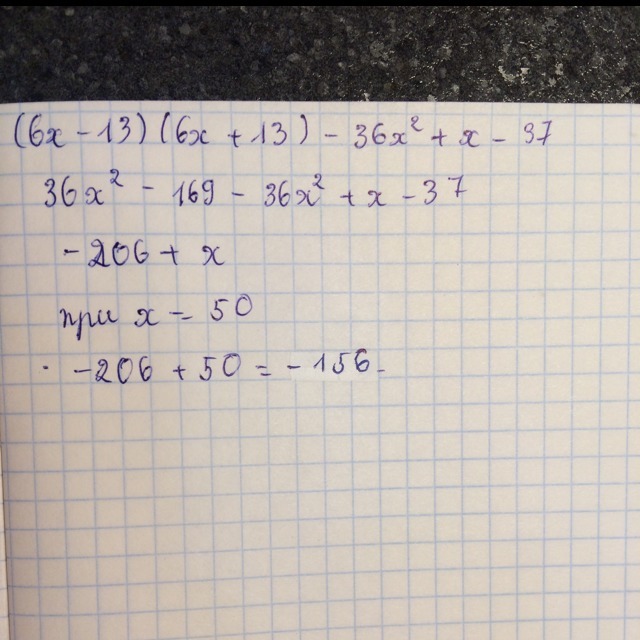 (6x - 13)(6x + 13) - 36x² + x - 37
36x² - 169 - 36x² + x - 37
-206 + x
при x = 50
-206 + 50 = -156